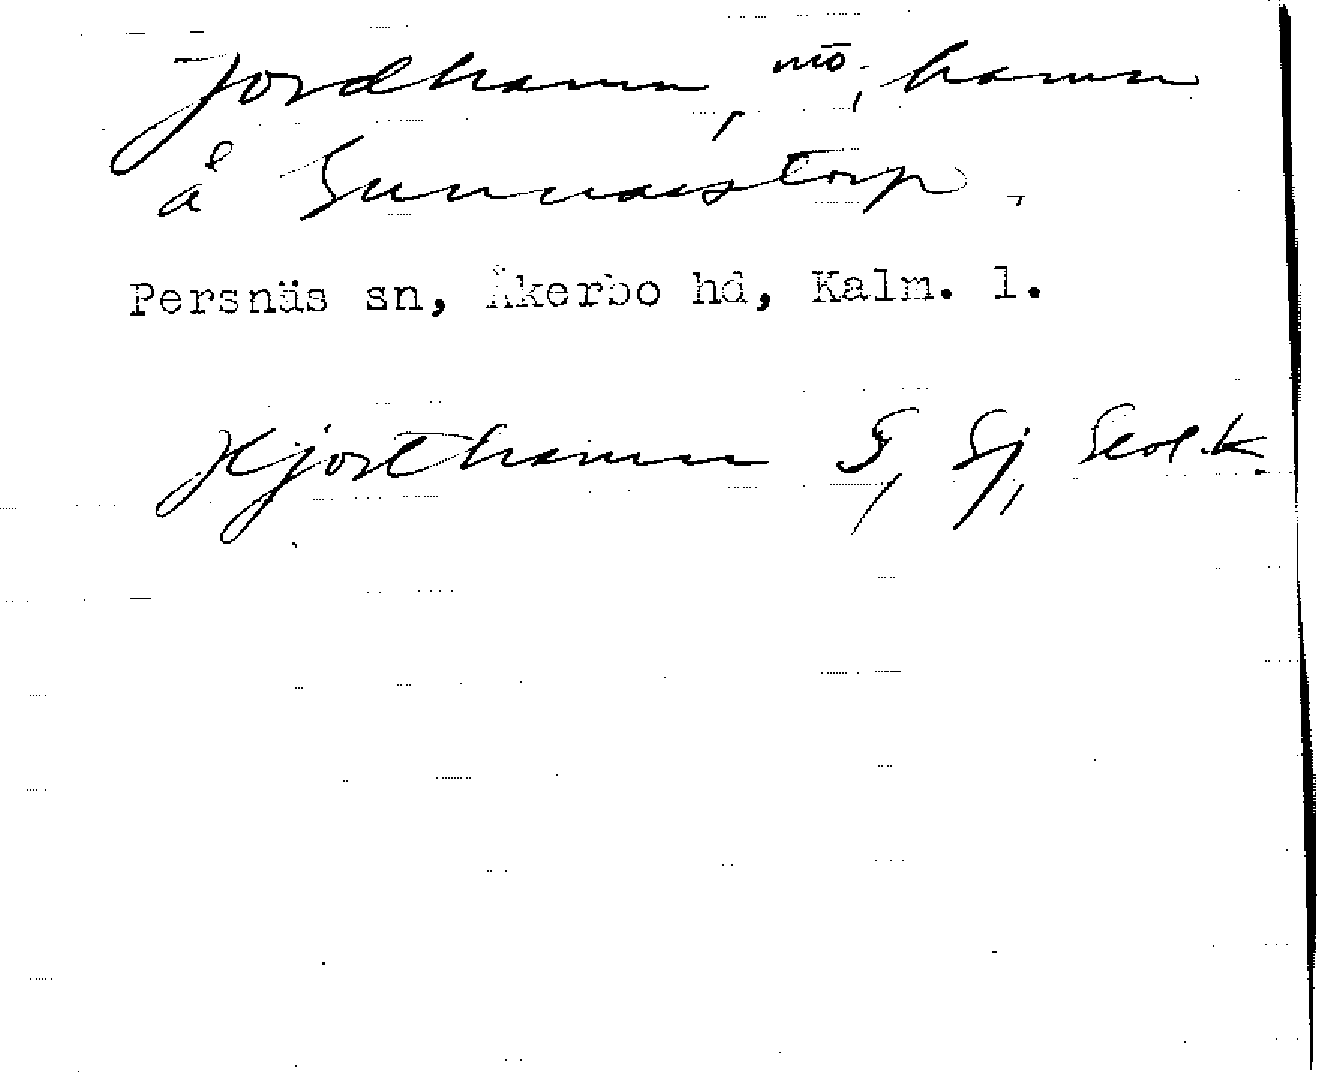 Jordhamn, mö, hamn
å Gunnarstorp.
Persnäs sn, Åkerbo hd, Kalm. l.
Hjorthamn G, Sj, Skol.k.